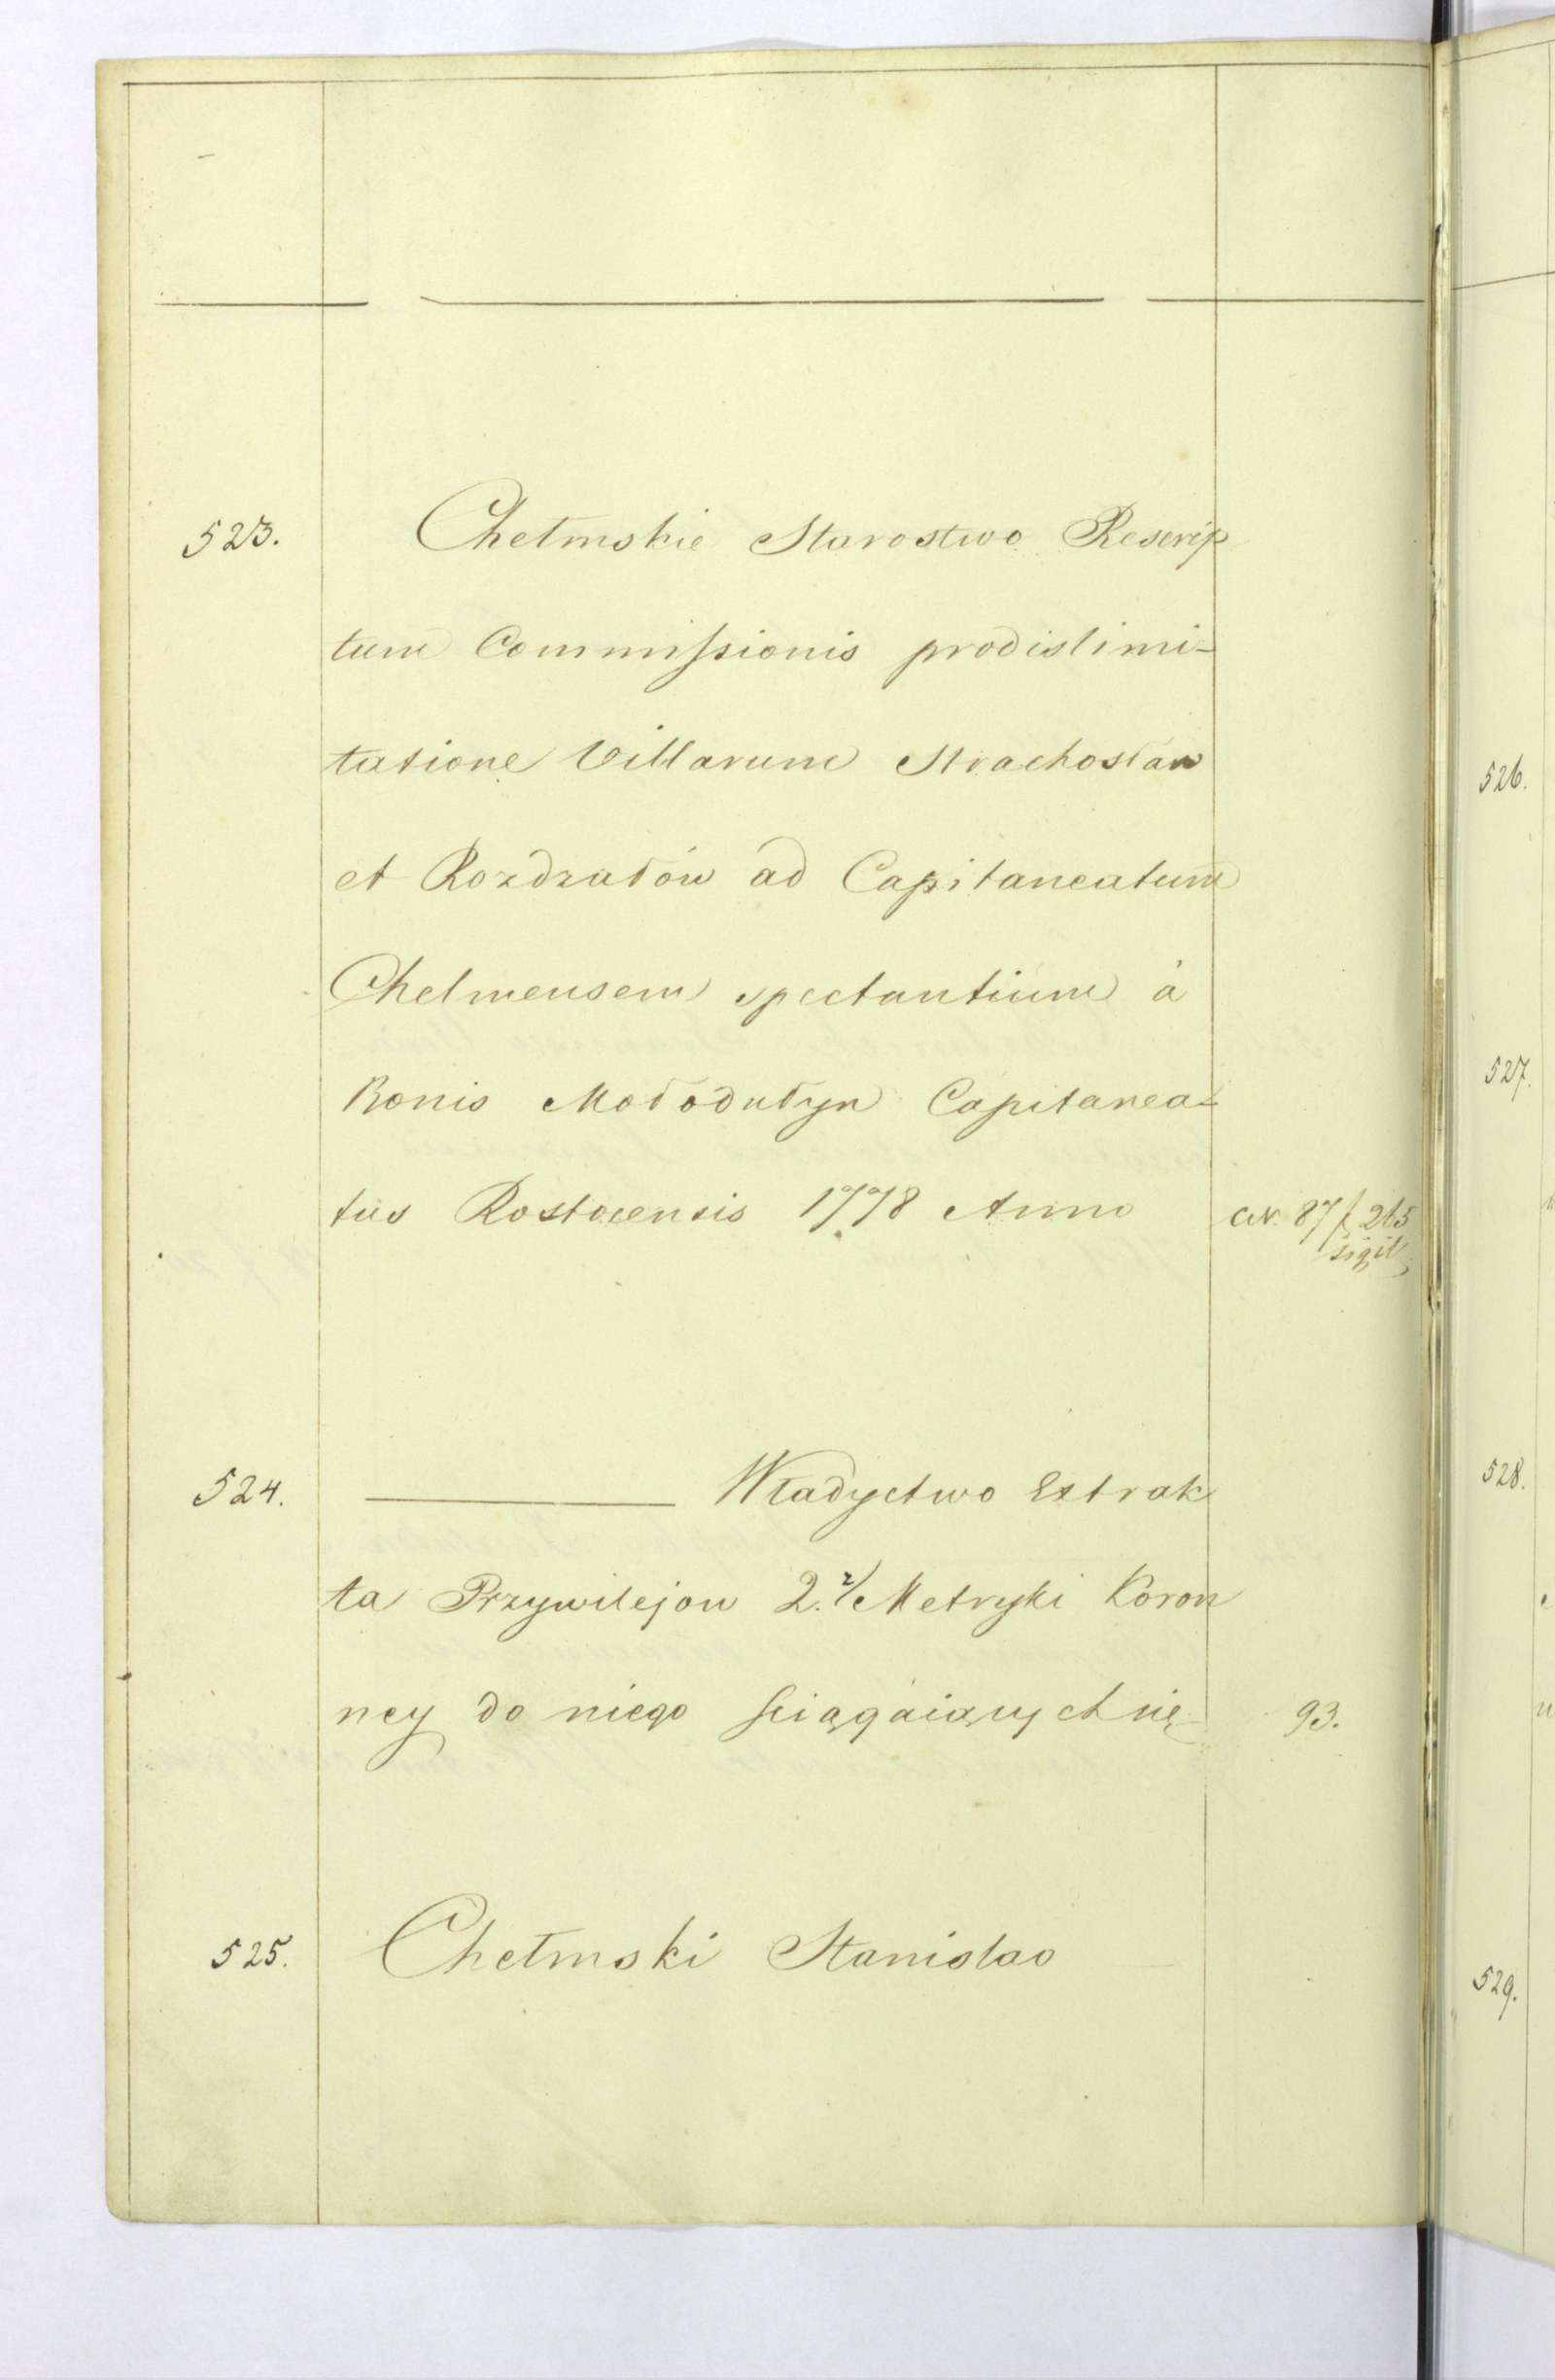 523. Chełmskie Starostwo Rescrip
tum Commissionis prodislimi-
tatione Villarum Strachosław
et Rozdzałów ad Capitaneatum
Chelmensem spectantium à
Bonis Mołodutyn Capitanea-
tus Rostocensis 1778 Anno cN. 87 f 265
sigil
524. Władyctwo Extrak
ta Przywilejow 2. Metryki Koron
ney do niego ściągaiących się 93.
525. Chełmski Stanislao
526.
527.
528.
529.